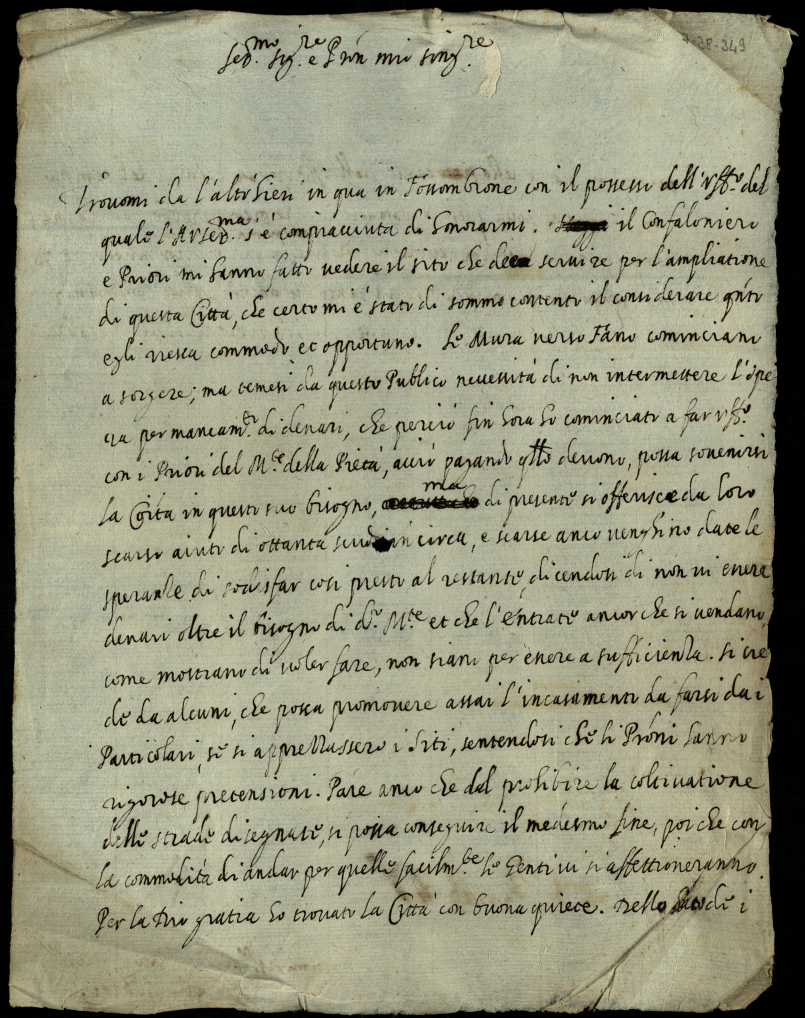 Ser.mo Sig.re e Pron mio sing.re
7-38-349
Trovomi da l'altr'hieri in qua in Fossombrone con il possesso dell'uff.o del
quale l'A.V.Ser.ma s'è compiacciuta di honorarmi. il Confaloniero
e Priori mi hanno fatto vedere il sito che deve servire per l'ampliatione
di questa Città, che certo mi è stato di sommo contento il considerare q.nto
egli riesca commodo et opportuno. Le Mura verso Fano cominciano
a sorgere; ma temesi da questo Publico necessità di non intermettere l'ope
ra per mancam.to di denari, che perciò fin hora ho cominciato a far uff.o
con i Priori del M.te della Pietà, acciò pagando q.llo devono, possa sovenirsi
la Città in questo suo bisogno, ma di presente si offerisce da loro
scarso aiuto di ottanta scudi in circa, e scarse anco venghino date le
speranze di sodisfar così presto al restante, dicendosi di non vi essere
denari oltre il bisogno di d.o M.te et che l'entrate ancor che si vendano,
come mostrano di voler fare, non siano per essere a sufficienza. Si cre
de da alcuni, che possa promovere assai l'incasamento da farsi da i
Particolari, se si apprezzassero i siti, sentendosi che li Proni hanno
rigorose pretensioni. Pare anco che dal prohibire la coltivatione
delle strade disegnate, si possa conseguire il medesmo fine, poi che con
la commodità di andar per quelle facilm.te le genti vi si affettioneranno.
Per la Dio gratia ho trovato la Città con buona quiete. Nello de i